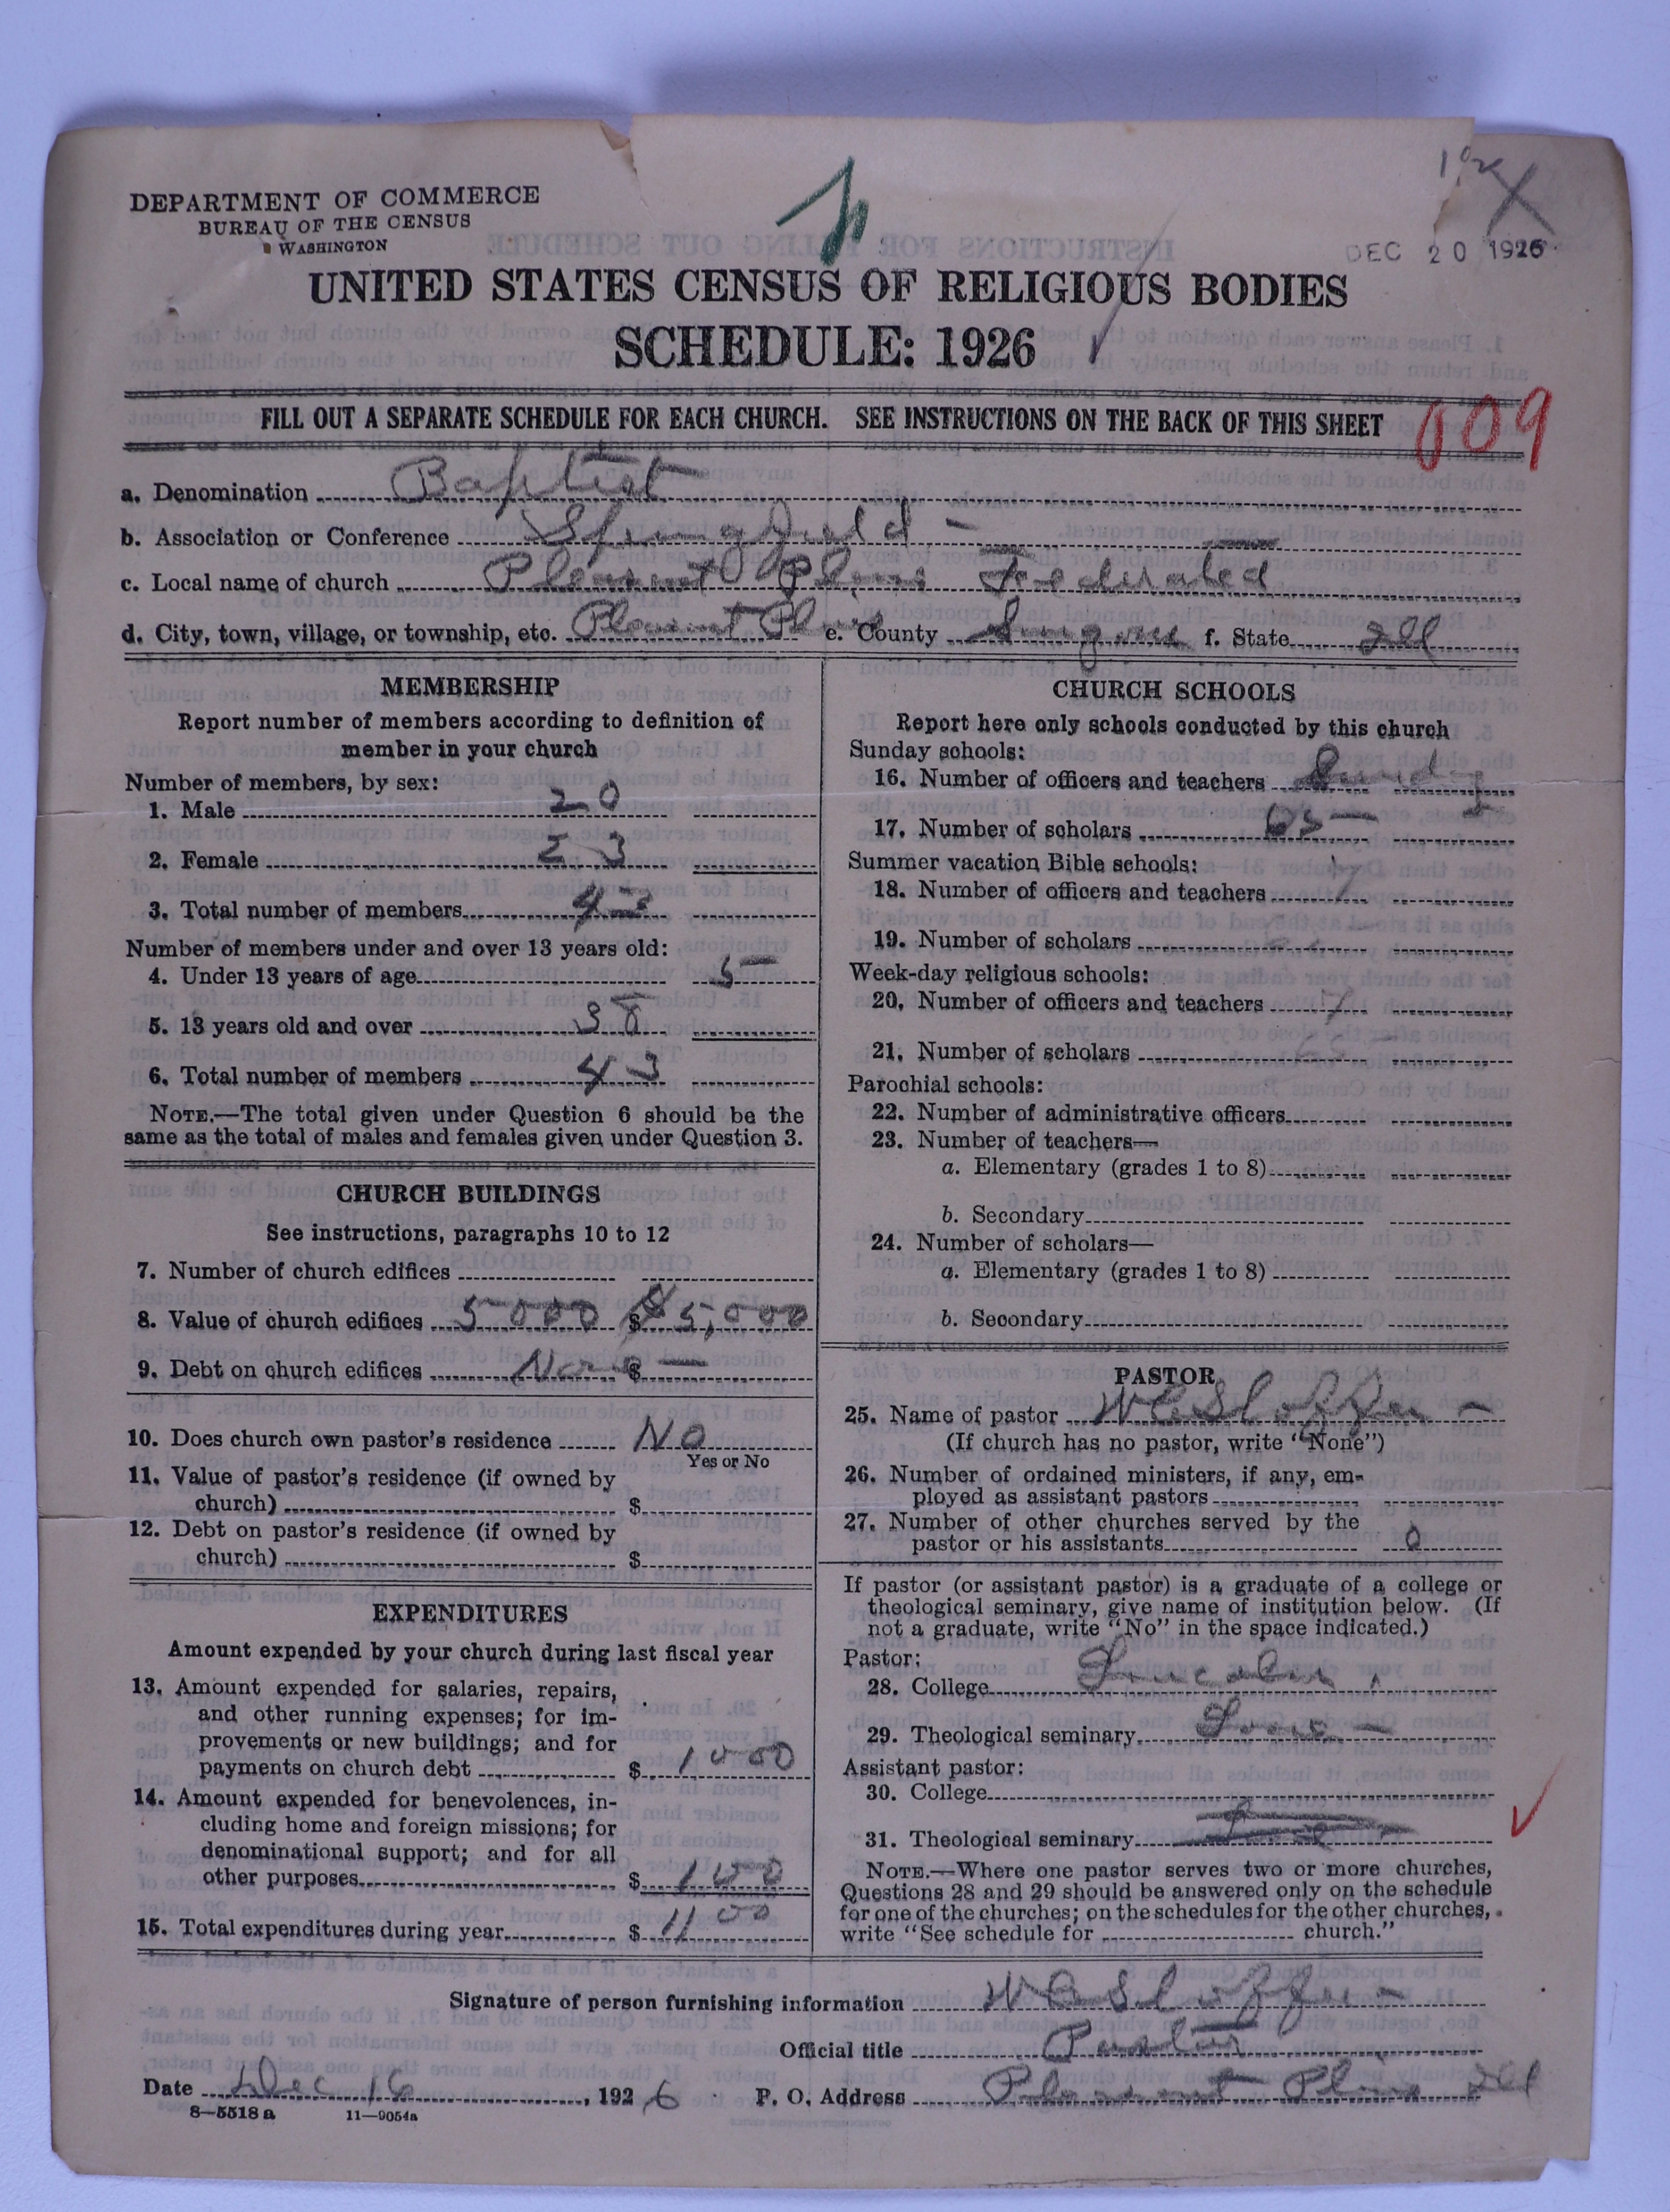 DEPARTMENT OF COMMERCE
BUREAU OF THE CENSUS
WASHINGTON
DEC 20 1926
UNITED STATES CENSUS OF RELIGIOUS BODIES
SCHEDULE: 1926
FILL OUT A SEPARATE SCHEDULE FOR EACH CHURCH. SEE INSTRUCTIONS ON THE BACK OF THIS SHEET
609
a. Denomination Baptist
b. Association or Conference Springfield -
c. Local name of church Pleasant Plains Federated
d. City, town, village, or township, etc. Pleasant Plains e. County Sangamon f. State Ill
MEMBERSHIP
Report number of members according to definition of
member in your church
Number of members, by sex:
1. Male 20
2. Female 23
3. Total number of members 43
Number of members under and over 13 years old:
4. Under 13 years of age 5
5. 13 years old and over 38
6. Total number of members 43
NOTE.—The total given under Question 6 should be the
same as the total of males and females given under Question 3.
CHURCH BUILDINGS
See instructions, paragraphs 10 to 12
7. Number of church edifices
8. Value of church edifices 5000 $ 5,000
9. Debt on church edifices None $
10. Does church own pastor's residence No
Yes or No
11. Value of pastor's residence (if owned by
church) $
12. Debt on pastor's residence (if owned by
church) $
EXPENDITURES
Amount expended by your church during last fiscal year
13. Amount expended for salaries, repairs,
and other running expenses; for im-
provements or new buildings; and for
payments on church debt $ 1000
14. Amount expended for benevolences, in-
cluding home and foreign missions; for
denominational support; and for all
other purposes $ 100
15. Total expenditures during year $ 1100
CHURCH SCHOOLS
Report here only schools conducted by this church
Sunday schools:
16. Number of officers and teachers
17. Number of scholars 65
Summer vacation Bible schools:
18. Number of officers and teachers
19. Number of scholars
Week-day religious schools:
20. Number of officers and teachers
21. Number of scholars
Parochial schools:
22. Number of administrative officers
23. Number of teachers—
a. Elementary (grades 1 to 8)
b. Secondary
24. Number of scholars—
a. Elementary (grades 1 to 8)
b. Secondary
PASTOR
25. Name of pastor
(If church has no pastor, write "None")
26. Number of ordained ministers, if any, em-
ployed as assistant pastors
27. Number of other churches served by the
pastor or his assistants 0
If pastor (or assistant pastor) is a graduate of a college or
theological seminary, give name of institution below. (If
not a graduate, write "No" in the space indicated.)
Pastor:
28. College Lincoln
29. Theological seminary
Assistant pastor:
30. College
31. Theological seminary
NOTE.—Where one pastor serves two or more churches,
Questions 28 and 29 should be answered only on the schedule
for one of the churches; on the schedules for the other churches,
write "See schedule for church."
Signature of person furnishing information
Official title Pastor
Date Dec 16, 1926 P. O. Address Pleasant Plains Ill
8—5518 a 11—9054a